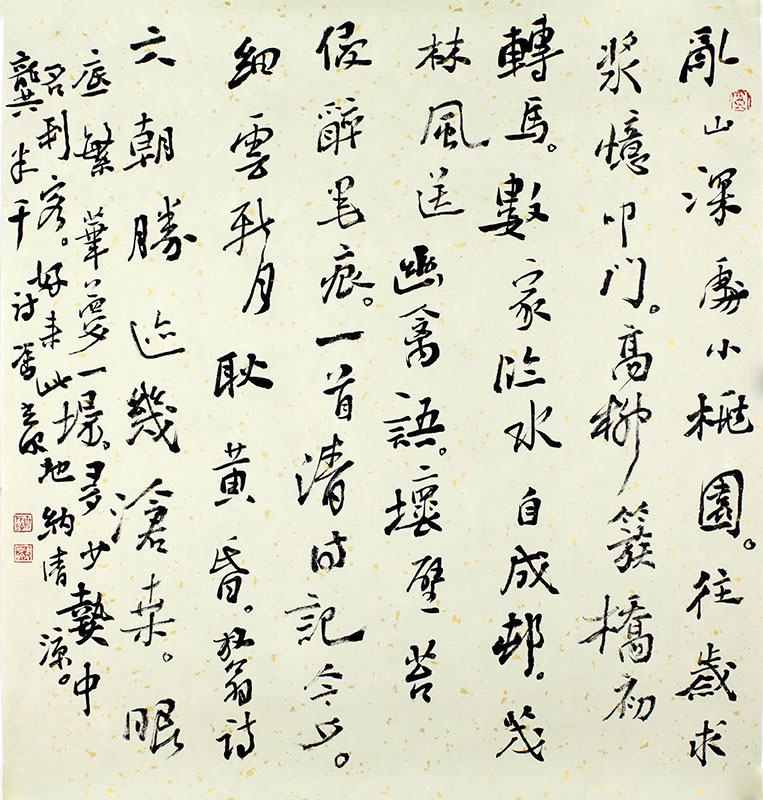 亂山深處小桃園。往歲求
漿憶叩门。高柳簇橋初
轉馬。數家临水自成邨。茂
林風送幽禽語。壞壁苔
侵醉墨痕。一首清诗記今夕。
細雲新月耿黄昏。放翁诗
六朝勝迹幾滄桑。眼
底繁華夢一場。多少熱中
名利客。好来此地納清涼。
龔半千诗